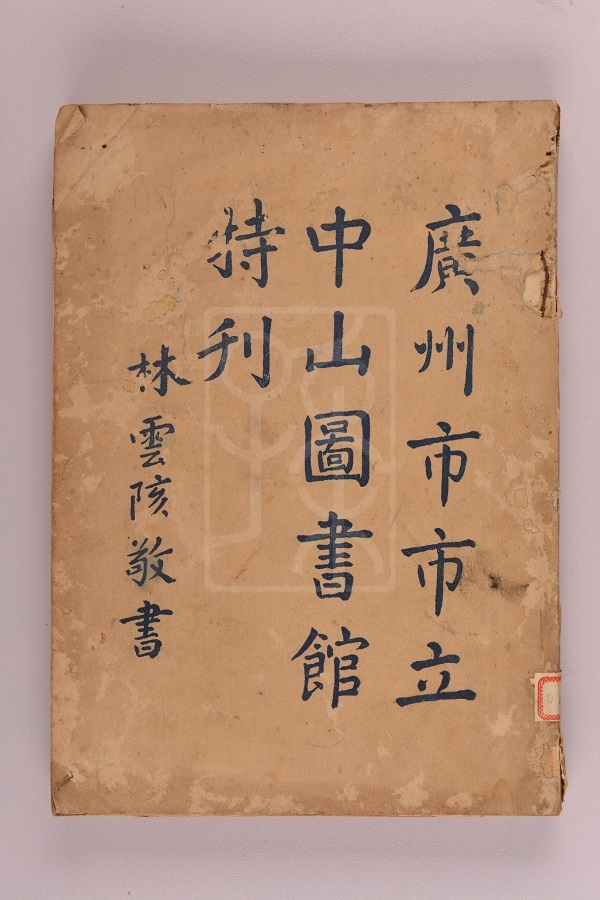 廣州市市立
中山圖書館
特刊
林雲陔敬書